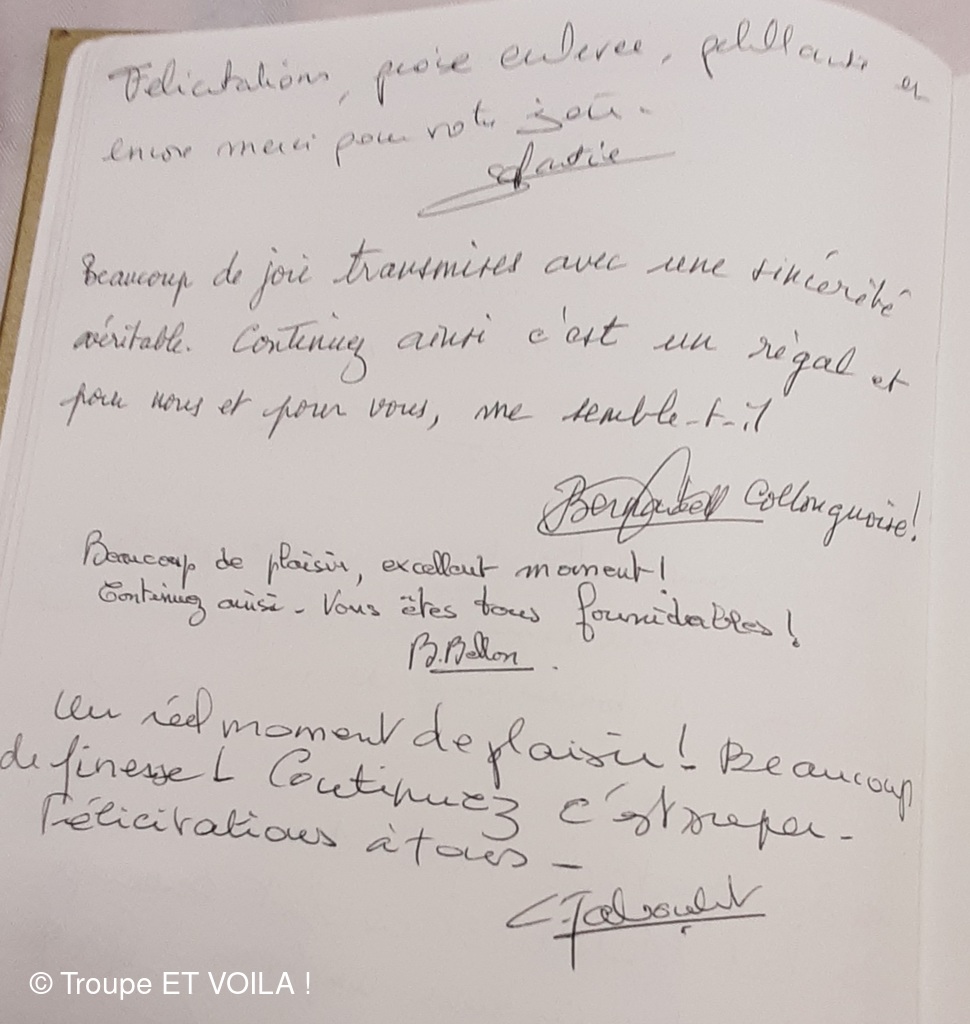 Félicitations, pièce enlevée, pétillante et
encore merci pour votre joie.
Beaucoup de joie transmises avec une sincérité
véritable. Continuez ainsi c'est un régal et
pour nous et pour vous, me semble-t-il
Collongnoise!
Beaucoup de plaisir, excellent moment!
Continuez ainsi. Vous êtes tous formidables!
B. Bellon.
Un réel moment de plaisir! Beaucoup
de finesse! Continuez c'est super -
Félicitations à tous -
© Troupe ET VOILA !